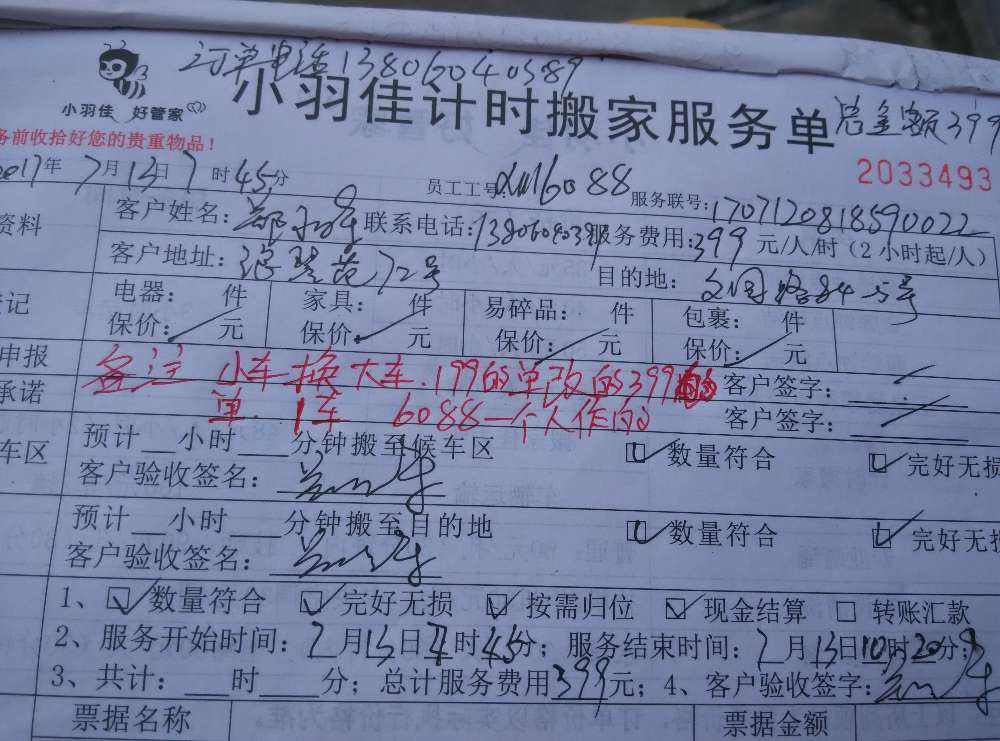 订单电话13806040389
小羽佳 好管家
小羽佳计时搬家服务单 总金额399
务前收拾好您的贵重物品！
2033493
2017年7月13日7时45分 员工工号 6088 服务联号：1707120818590022
资料 客户姓名： 联系电话：13806040389 服务费用：399元/人/时（2小时起/人）
客户地址： 72号 目的地： 文园路84-5号
登记 电器： 件 家具： 件 易碎品： 件 包裹： 件
保价： 元 保价： 元 保价： 元 保价： 元
申报 备注 小车换大车.199的单改的399的 客户签字：
承诺 单.1车 6088一个人作的 客户签字：
车区 预计 小时 分钟搬至候车区 数量符合 完好无损
客户验收签名：
预计 小时 分钟搬至目的地 数量符合 完好无损
客户验收签名：
1、 数量符合 完好无损 按需归位 现金结算 转账汇款
2、服务开始时间：7月13日7时45分；服务结束时间：7月13日10时20分；
3、共计： 时 分；总计服务费用399元；4、客户验收签字：
票据名称 票据金额